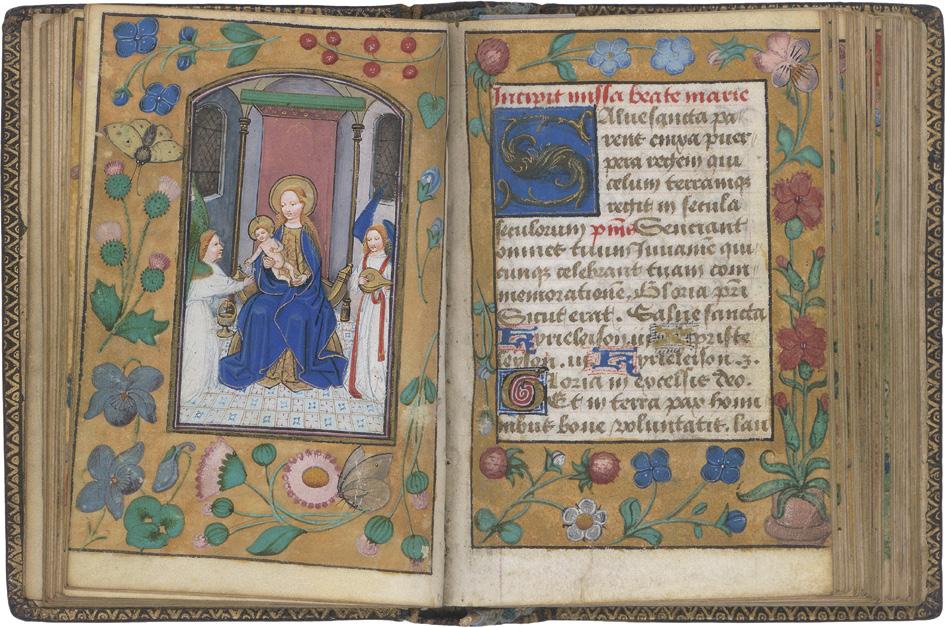 Incipit missa beate marie
Salue sancta pa
rens enixa puer
pera regem qui
celum terramqz
regit in secula
seculorum. ps̄ Senciant
omnes tuum Iuuamē qui
cunqz celebrant tuam com
memorationē. Gloria pr̄i
Sicut erat. Salue sancta
Kyrieleison. iij. Xpriste
leison. iij. Kyrieleison. 3.
Gloria in excelsis deo.
Et in terra pax homi
nibus bone voluntatis. lau